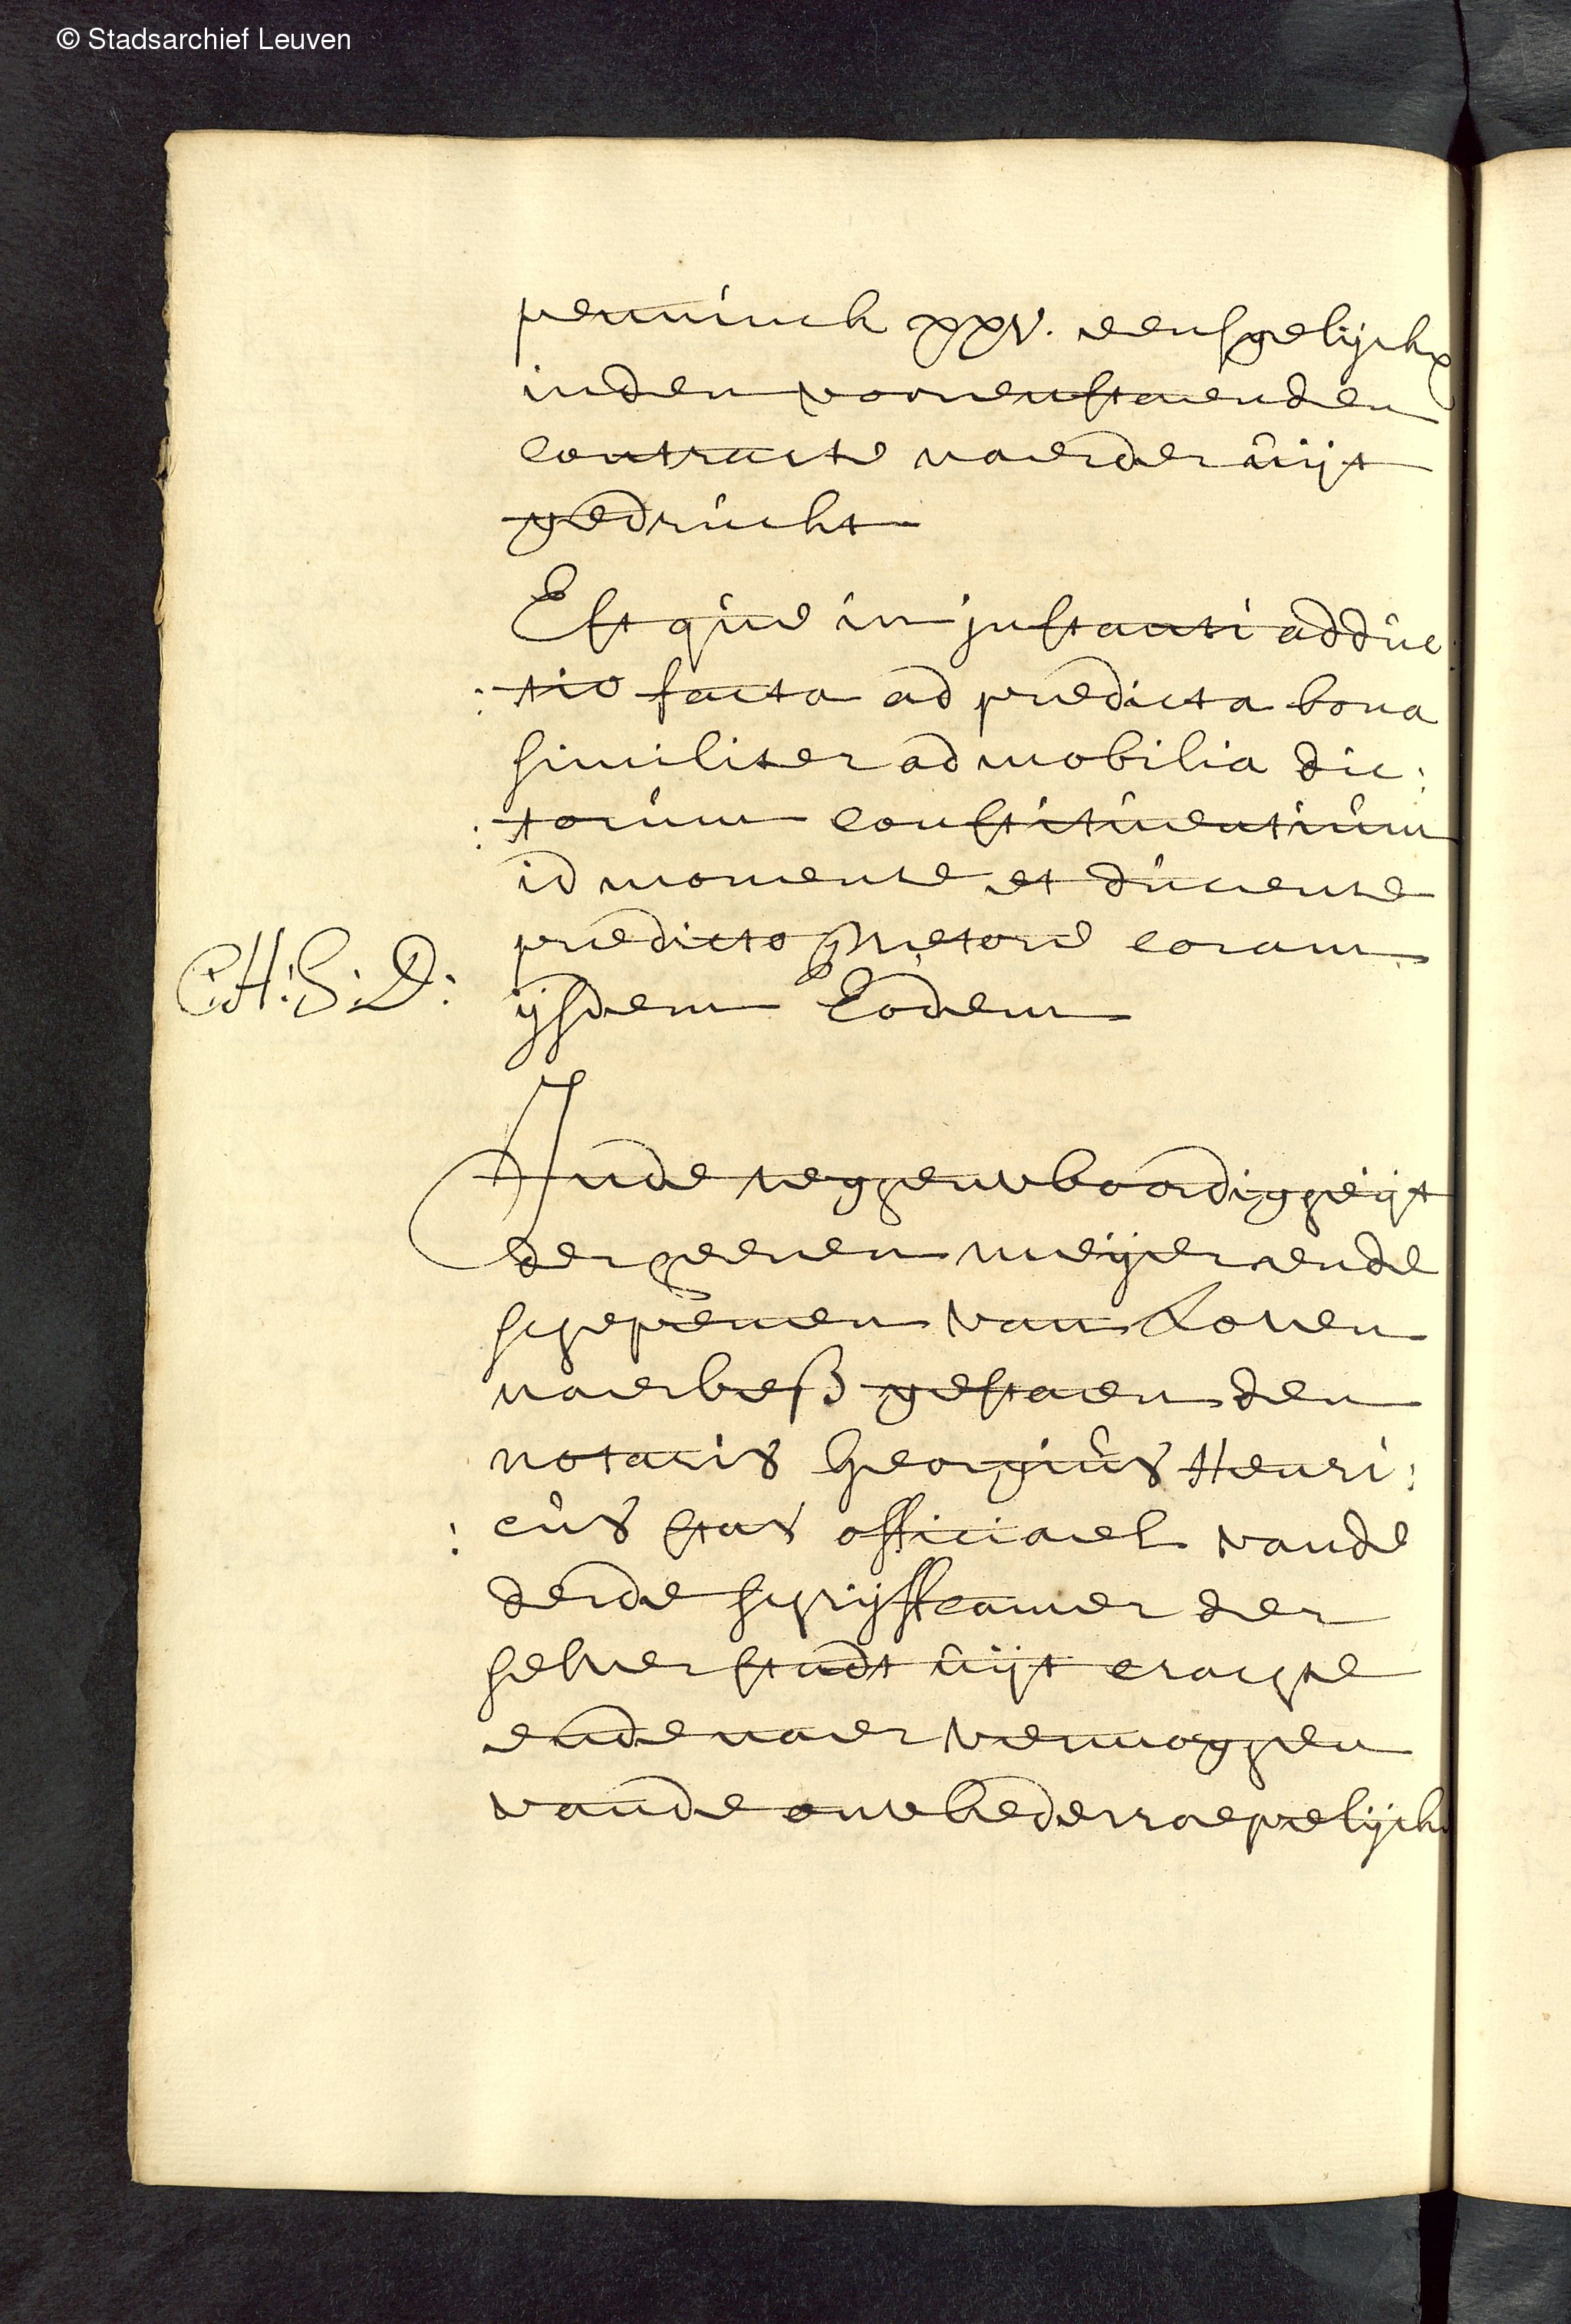 © Stadsarchief Leuven
penninck xxv. eensgelijckx
inden voorenstaenden
contracte naerder uijt
gedruckt
Estque in instanti adduc
:tio facta ad predicta bona
similiter ad mobilia dic:
:torum constituentium
id monente et ducente
predicto Pretore coram
C:H:S:D:
ijsdem Eodem
Inde tegenwoordigheijt
der heeren meijer ende
schepenen van Loven
naerbess gestaen den
notaris Georgius Henri:
:cus stas officiael vande
derde schrijffcamer der
selver stadt uijt crachte
ende naer vermoghen
vande onwederroepelijcke